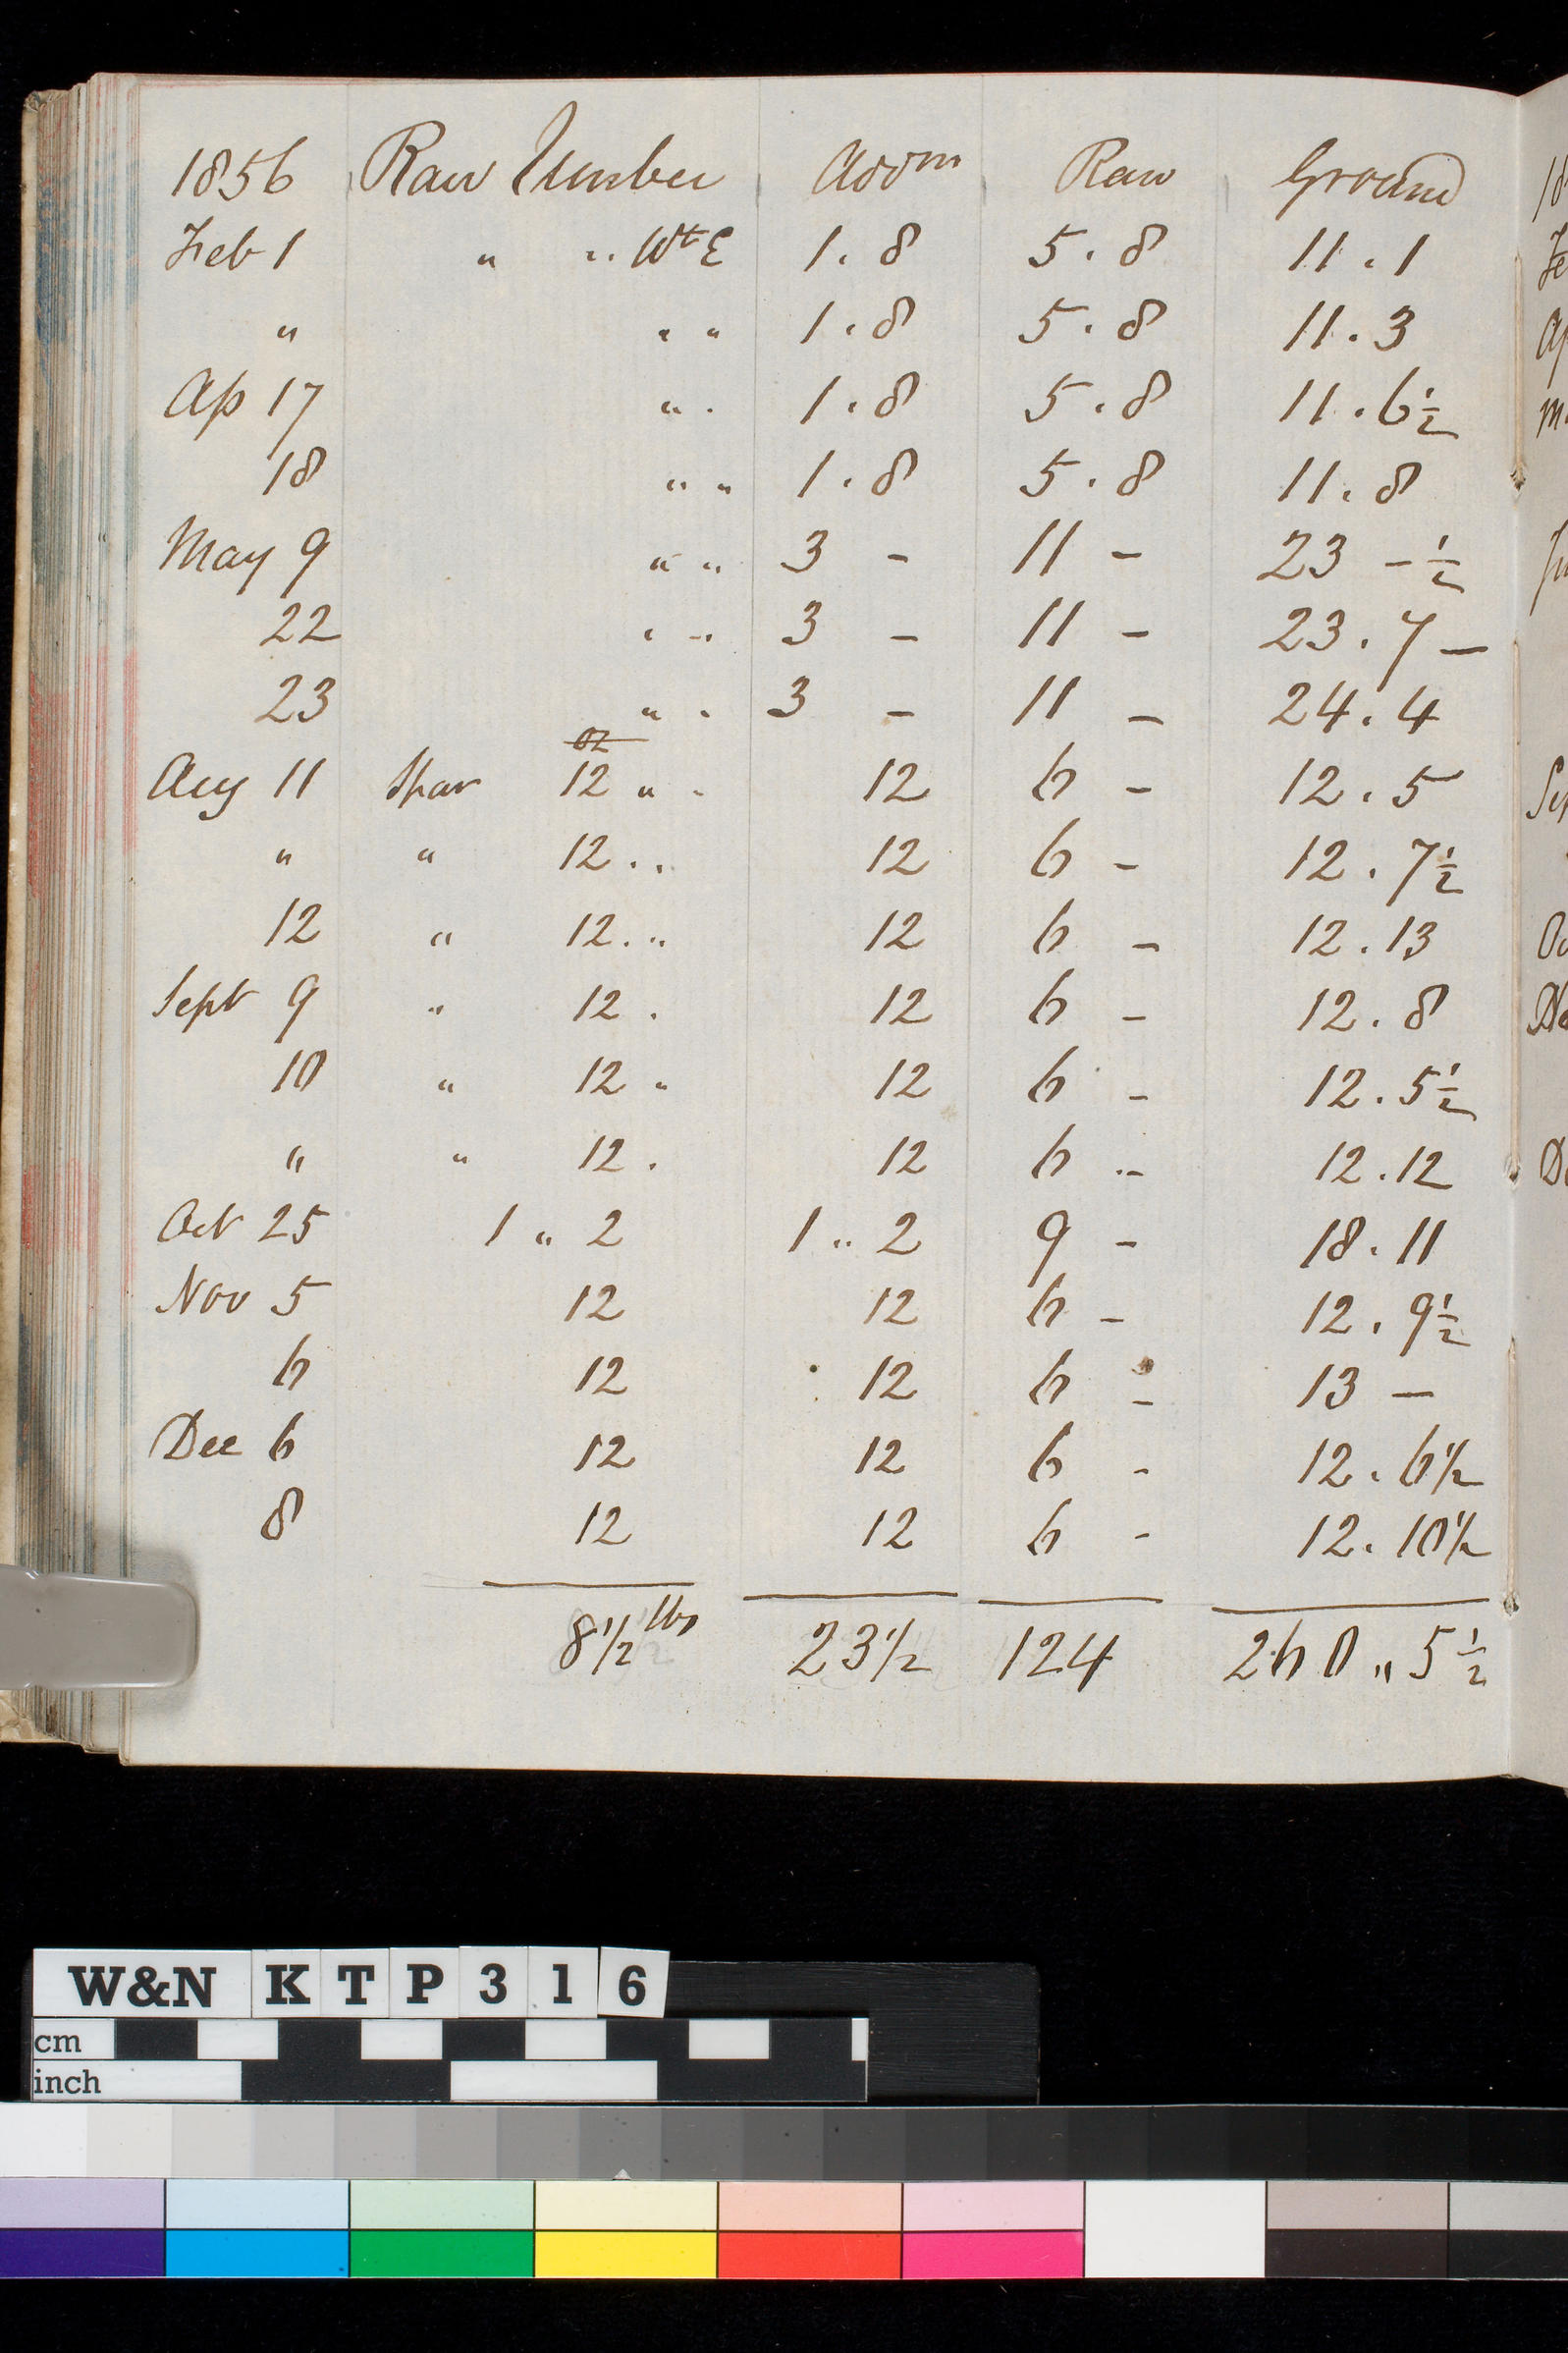 1856 Raw Umber Addm Raw Ground
Feb 1 " " Wt E 1.8 5.8 11.1
" " " 1.8 5.8 11.3
Ap 17 " . 1.8 5.8 11.6½
18 " " 1.8 5.8 11.8
May 9 " " 3 - 11 - 23 - ½
22 " " 3 - 11 - 23.7 -
23 " " 3 - 11 - 24.4
oz
Aug 11 Spar 12 " " 12 6 - 12.5
" " 12 . . 12 6 - 12.7½
12 " 12 . " 12 6 - 12.13
Sept 9 " 12 . 12 6 - 12.8
10 " 12 " 12 6 - 12.5½
" " 12 . 12 6 - 12.12
Oct 25 1 " 2 1 " 2 9 - 18.11
Nov 5 12 12 6 - 12.9½
6 12 12 6 - 13 -
Dec 6 12 12 6 - 12.6½
8 12 12 6 - 12.10½
8½ lbs 23½ 124 260 " 5½
W&N KTP316
cm
inch